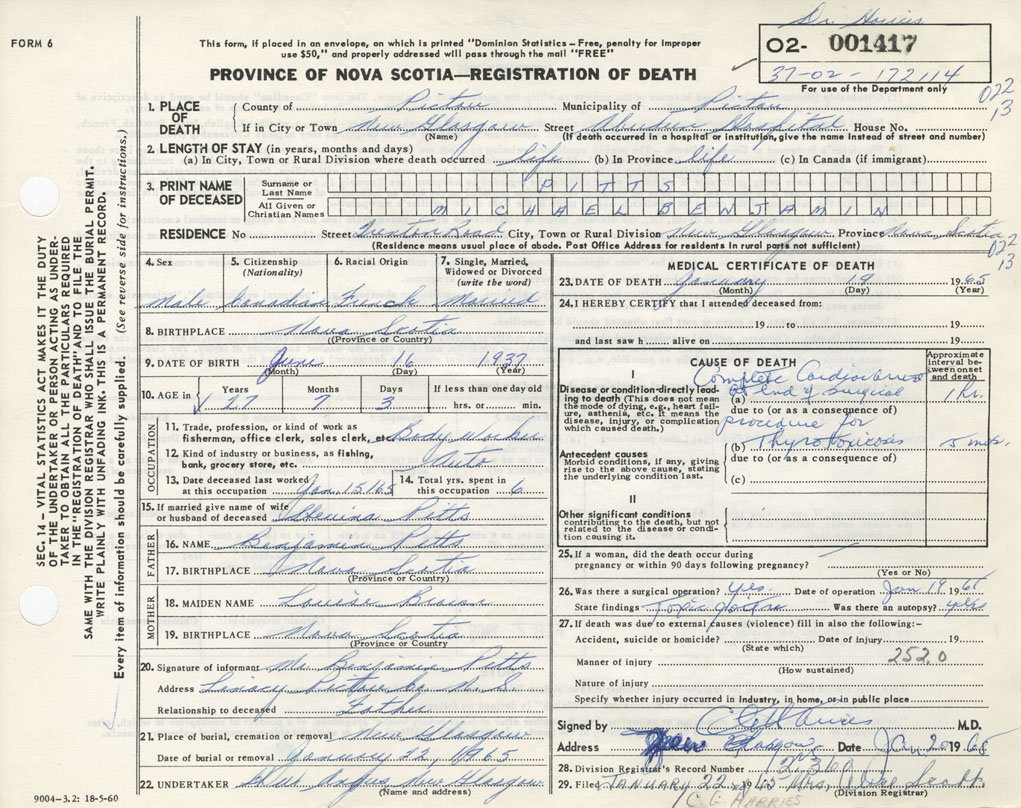 Dr. Harries
FORM 6
This form, if placed in an envelope, on which is printed "Dominion Statistics – Free, penalty for improper
use $50," and properly addressed will pass through the mail "FREE"
02- 001417
37-02-172114
For use of the Department only
PROVINCE OF NOVA SCOTIA—REGISTRATION OF DEATH
022
13
1. PLACE OF DEATH
County of Pictou Municipality of Pictou
If in City or Town New Glasgow Street Aberdeen Hospital House No.
(Name) (If death occurred in a hospital or institution, give the name instead of street and number)
2. LENGTH OF STAY (in years, months and days)
(a) In City, Town or Rural Division where death occurred life (b) In Province life (c) In Canada (if immigrant)
3. PRINT NAME OF DECEASED
Surname or Last Name PITTS
All Given or Christian Names MICHAEL BENJAMIN
RESIDENCE No Street Road City, Town or Rural Division New Glasgow Province Nova Scotia
(Residence means usual place of abode. Post Office Address for residents in rural parts not sufficient)
022
13
SEC. 14 – VITAL STATISTICS ACT MAKES IT THE DUTY
OF THE UNDERTAKER OR PERSON ACTING AS UNDER-
TAKER TO OBTAIN ALL THE PARTICULARS REQUIRED
IN THE "REGISTRATION OF DEATH" AND TO FILE THE
SAME WITH THE DIVISION REGISTRAR WHO SHALL ISSUE THE BURIAL PERMIT.
WRITE PLAINLY WITH UNFADING INK. THIS IS A PERMANENT RECORD.
Every item of information should be carefully supplied. (See reverse side for instructions.)
4. Sex
Male
5. Citizenship
(Nationality)
Canadian
6. Racial Origin
French
7. Single, Married,
Widowed or Divorced
(write the word)
Married
8. BIRTHPLACE Nova Scotia
(Province or Country)
9. DATE OF BIRTH June 16 1937
(Month) (Day) (Year)
10. AGE in
Years Months Days If less than one day old
27 7 3 hrs. or min.
OCCUPATION
11. Trade, profession, or kind of work as
fisherman, office clerk, sales clerk, etc. Body Worker
12. Kind of industry or business, as fishing,
bank, grocery store, etc. Auto
13. Date deceased last worked
at this occupation Jan. 15, 165
14. Total yrs. spent in
this occupation 6
15. If married give name of wife
or husband of deceased Pitts
FATHER
16. NAME Benjamin Pitts
17. BIRTHPLACE Nova Scotia
(Province or Country)
MOTHER
18. MAIDEN NAME Louise
19. BIRTHPLACE Nova Scotia
(Province or Country)
20. Signature of informant Mr. Benjamin Pitts
Address Pictou Co. N. S.
Relationship to deceased Father
21. Place of burial, cremation or removal New Glasgow
Date of burial or removal January 22, 1965
22. UNDERTAKER Angus New Glasgow
(Name and address)
9004-3.2: 18-5-60
MEDICAL CERTIFICATE OF DEATH
23. DATE OF DEATH January 19 1965
(Month) (Day) (Year)
24. I HEREBY CERTIFY that I attended deceased from:
19 to 19
and last saw h alive on 19
CAUSE OF DEATH
Approximate
interval be-
tween onset
and death
I
Disease or condition directly lead-
ing to death (This does not mean
the mode of dying, e.g., heart fail-
ure, asthenia, etc. It means the
disease, injury, or complication
which caused death.)
Complete Cardiac arrest
(a) at end of surgical 1 hr.
due to (or as a consequence of)
procedure for
(b) Thyrotoxicosis 5 mos.
due to (or as a consequence of)
(c)
Antecedent causes
Morbid conditions, if any, giving
rise to the above cause, stating
the underlying condition last.
II
Other significant conditions
contributing to the death, but not
related to the disease or condi-
tion causing it.
25. If a woman, did the death occur during
pregnancy or within 90 days following pregnancy?
(Yes or No)
26. Was there a surgical operation? yes Date of operation Jan 19 1965
State findings Toxic Goitre Was there an autopsy? yes
27. If death was due to external causes (violence) fill in also the following:-
Accident, suicide or homicide? Date of injury 19
(State which)
Manner of injury 252.0
(How sustained)
Nature of injury
Specify whether injury occurred in industry, in home, or in public place
Signed by C G Harries M.D.
Address New Glasgow Date Jan 20 1965
28. Division Registrar's Record Number
29. Filed JANUARY 22 1965 Mrs.
(Division Registrar)
C. G. HARRIES